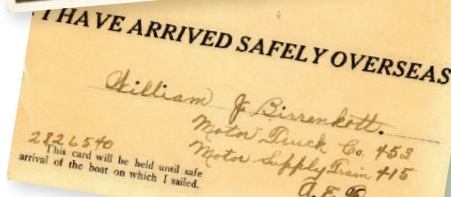 I HAVE ARRIVED SAFELY OVERSEAS
William J Birrenkott.
Motor Truck Co. 453
Motor Supply Train 415
A.E.F.
2826540
This card will be held until safe
arrival of the boat on which I sailed.